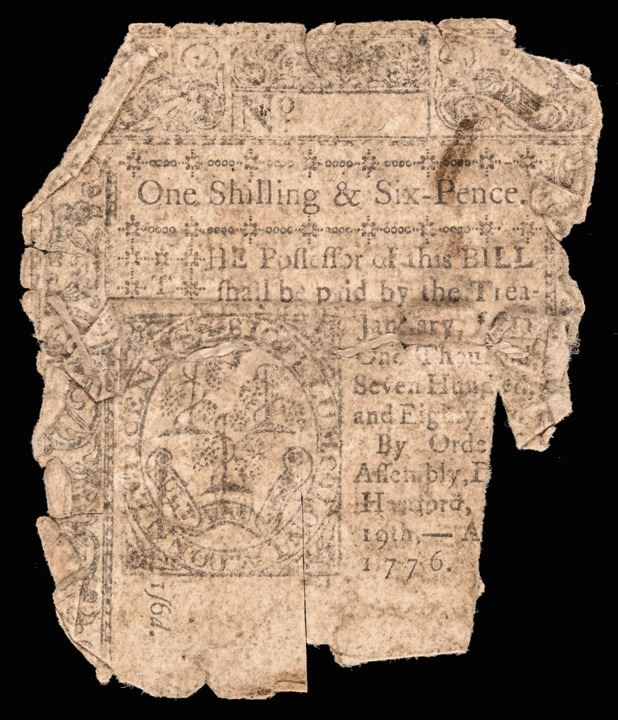 No
One Shilling & Six-Pence.
THE Possessor of this BILL
shall be paid by the Trea-
January,
One Thou
Seven Hundred,
and Eighty
By Orde
Assembly, D
Hartford,
19th,— A
1776.
1s6d.